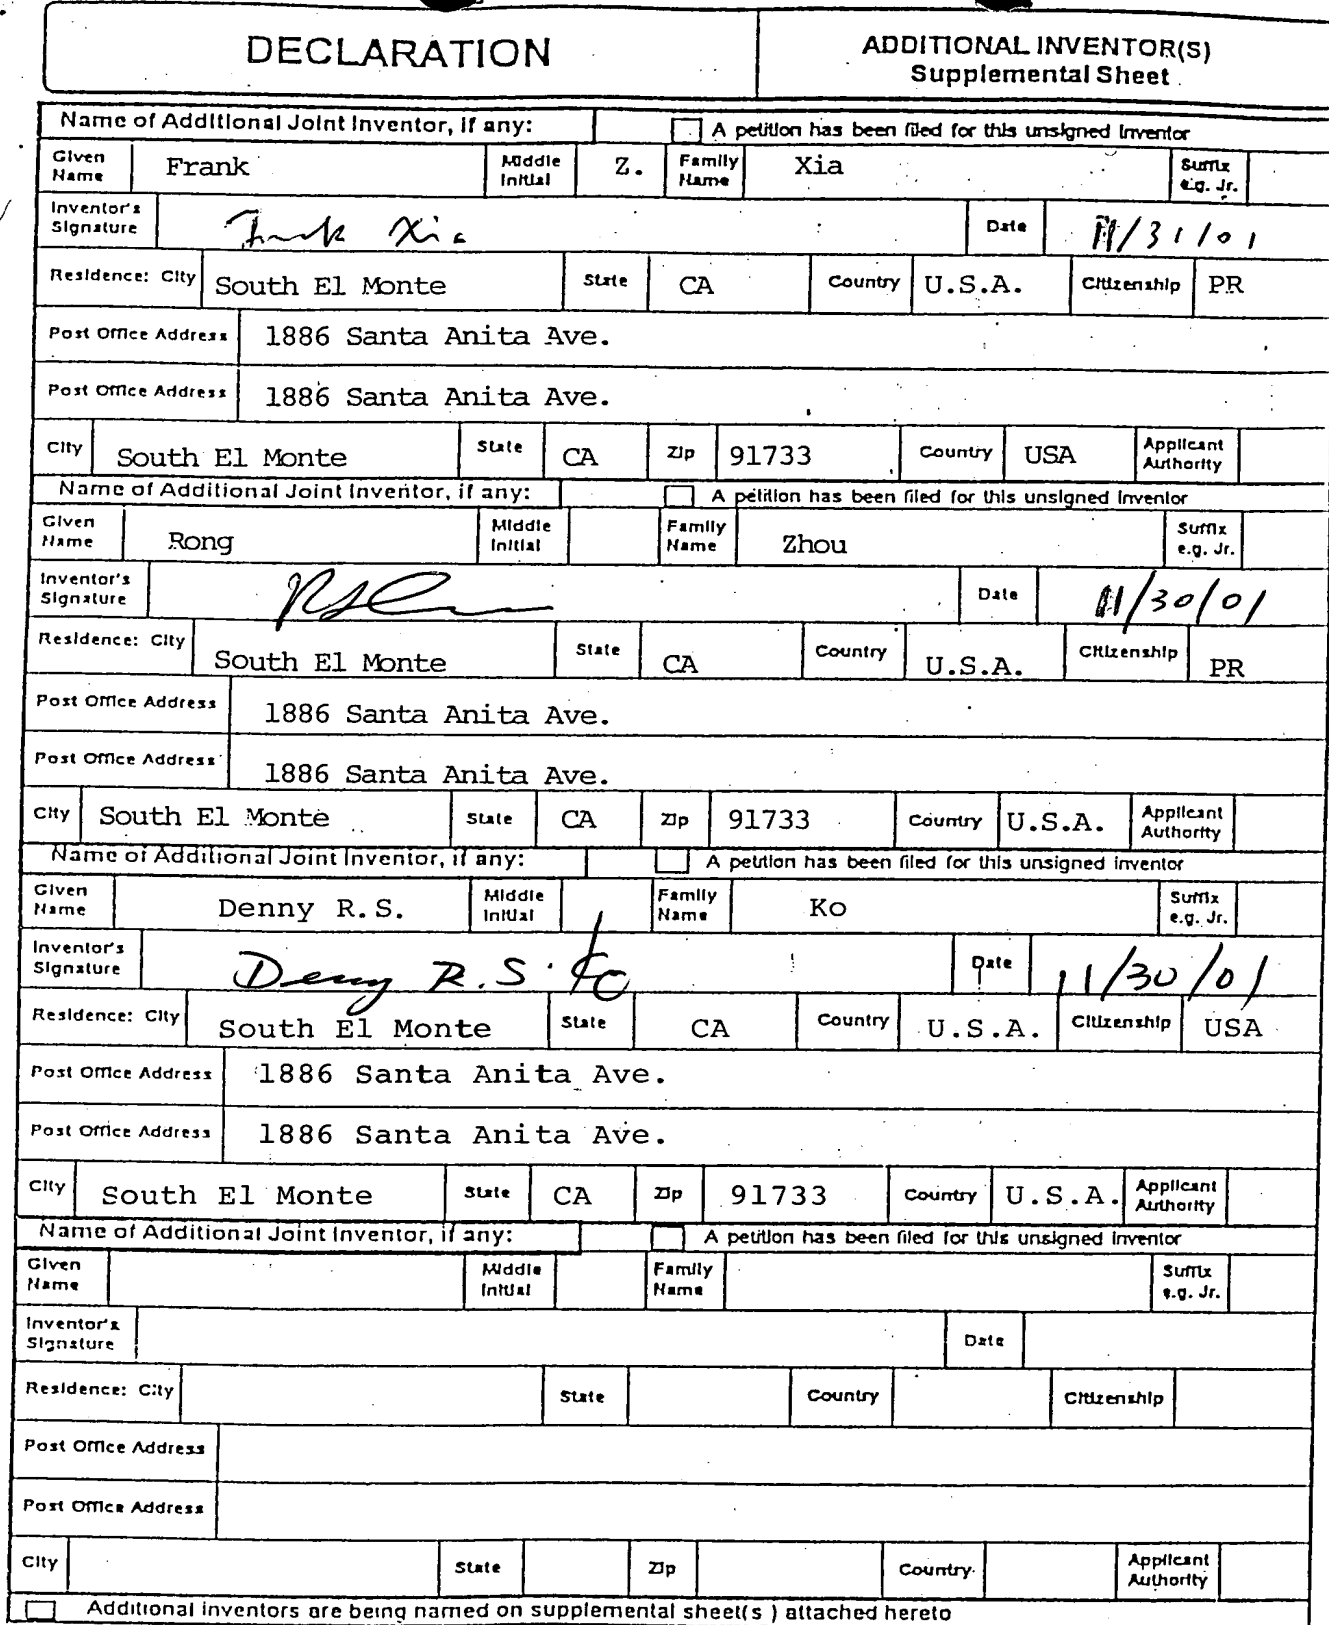 DECLARATION
ADDITIONAL INVENTOR(S)
Supplemental Sheet
Name of Additional Joint Inventor, if any: A petition has been filed for this unsigned inventor
Given Name Frank Middle Initial Z. Family Name Xia Suffix e.g. Jr.
Inventor's Signature Frank Xia Date 11/31/01
Residence: City South El Monte State CA Country U.S.A. Citizenship PR
Post Office Address 1886 Santa Anita Ave.
Post Office Address 1886 Santa Anita Ave.
City South El Monte State CA Zip 91733 Country USA Applicant Authority
Name of Additional Joint Inventor, if any: A petition has been filed for this unsigned inventor
Given Name Rong Middle Initial Family Name Zhou Suffix e.g. Jr.
Inventor's Signature Date 11/30/01
Residence: City South El Monte State CA Country U.S.A. Citizenship PR
Post Office Address 1886 Santa Anita Ave.
Post Office Address 1886 Santa Anita Ave.
City South El Monte State CA Zip 91733 Country U.S.A. Applicant Authority
Name of Additional Joint Inventor, if any: A petition has been filed for this unsigned inventor
Given Name Denny R.S. Middle Initial Family Name Ko Suffix e.g. Jr.
Inventor's Signature Denny R.S. Ko Date 11/30/01
Residence: City South El Monte State CA Country U.S.A. Citizenship USA
Post Office Address 1886 Santa Anita Ave.
Post Office Address 1886 Santa Anita Ave.
City South El Monte State CA Zip 91733 Country U.S.A. Applicant Authority
Name of Additional Joint Inventor, if any: A petition has been filed for this unsigned inventor
Given Name Middle Initial Family Name Suffix e.g. Jr.
Inventor's Signature Date
Residence: City State Country Citizenship
Post Office Address
Post Office Address
City State Zip Country Applicant Authority
Additional inventors are being named on supplemental sheet(s ) attached hereto